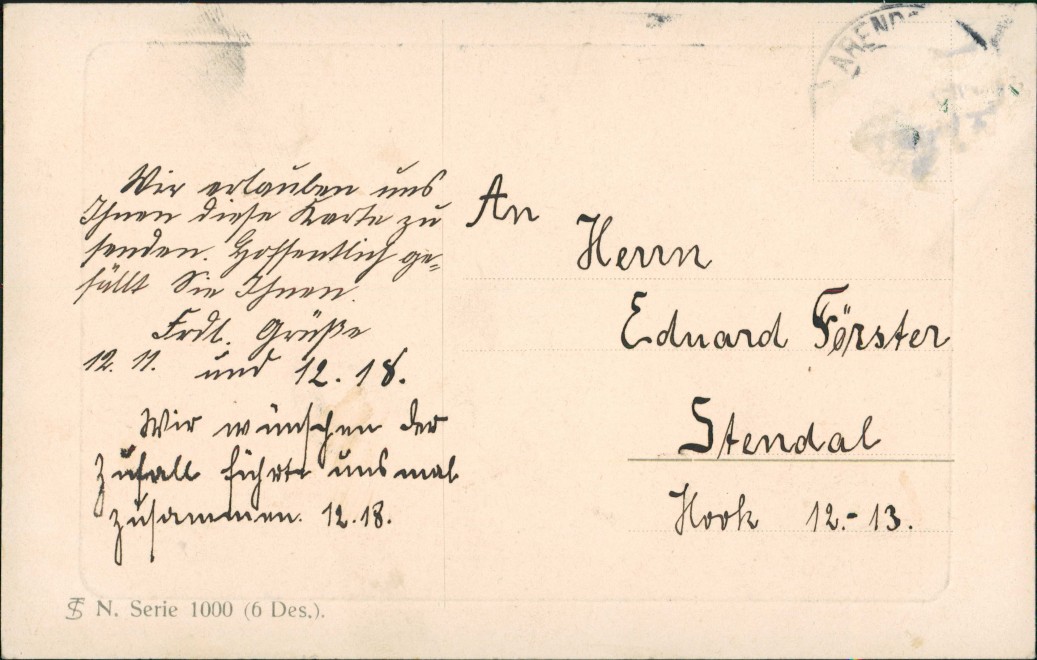 ARENDS
Wir erlauben uns
Ihnen diese Karte zu
senden. Hoffentlich ge-
fällt Sie Ihnen.
Frdl. Grüße
12. 11. und 12. 18.
Wir wünschen der
Zufall führte uns mal
zusammen. 12.18.
An
Herrn
Eduard Förster
Stendal
Hook 12.-13.
N. Serie 1000 (6 Des.).